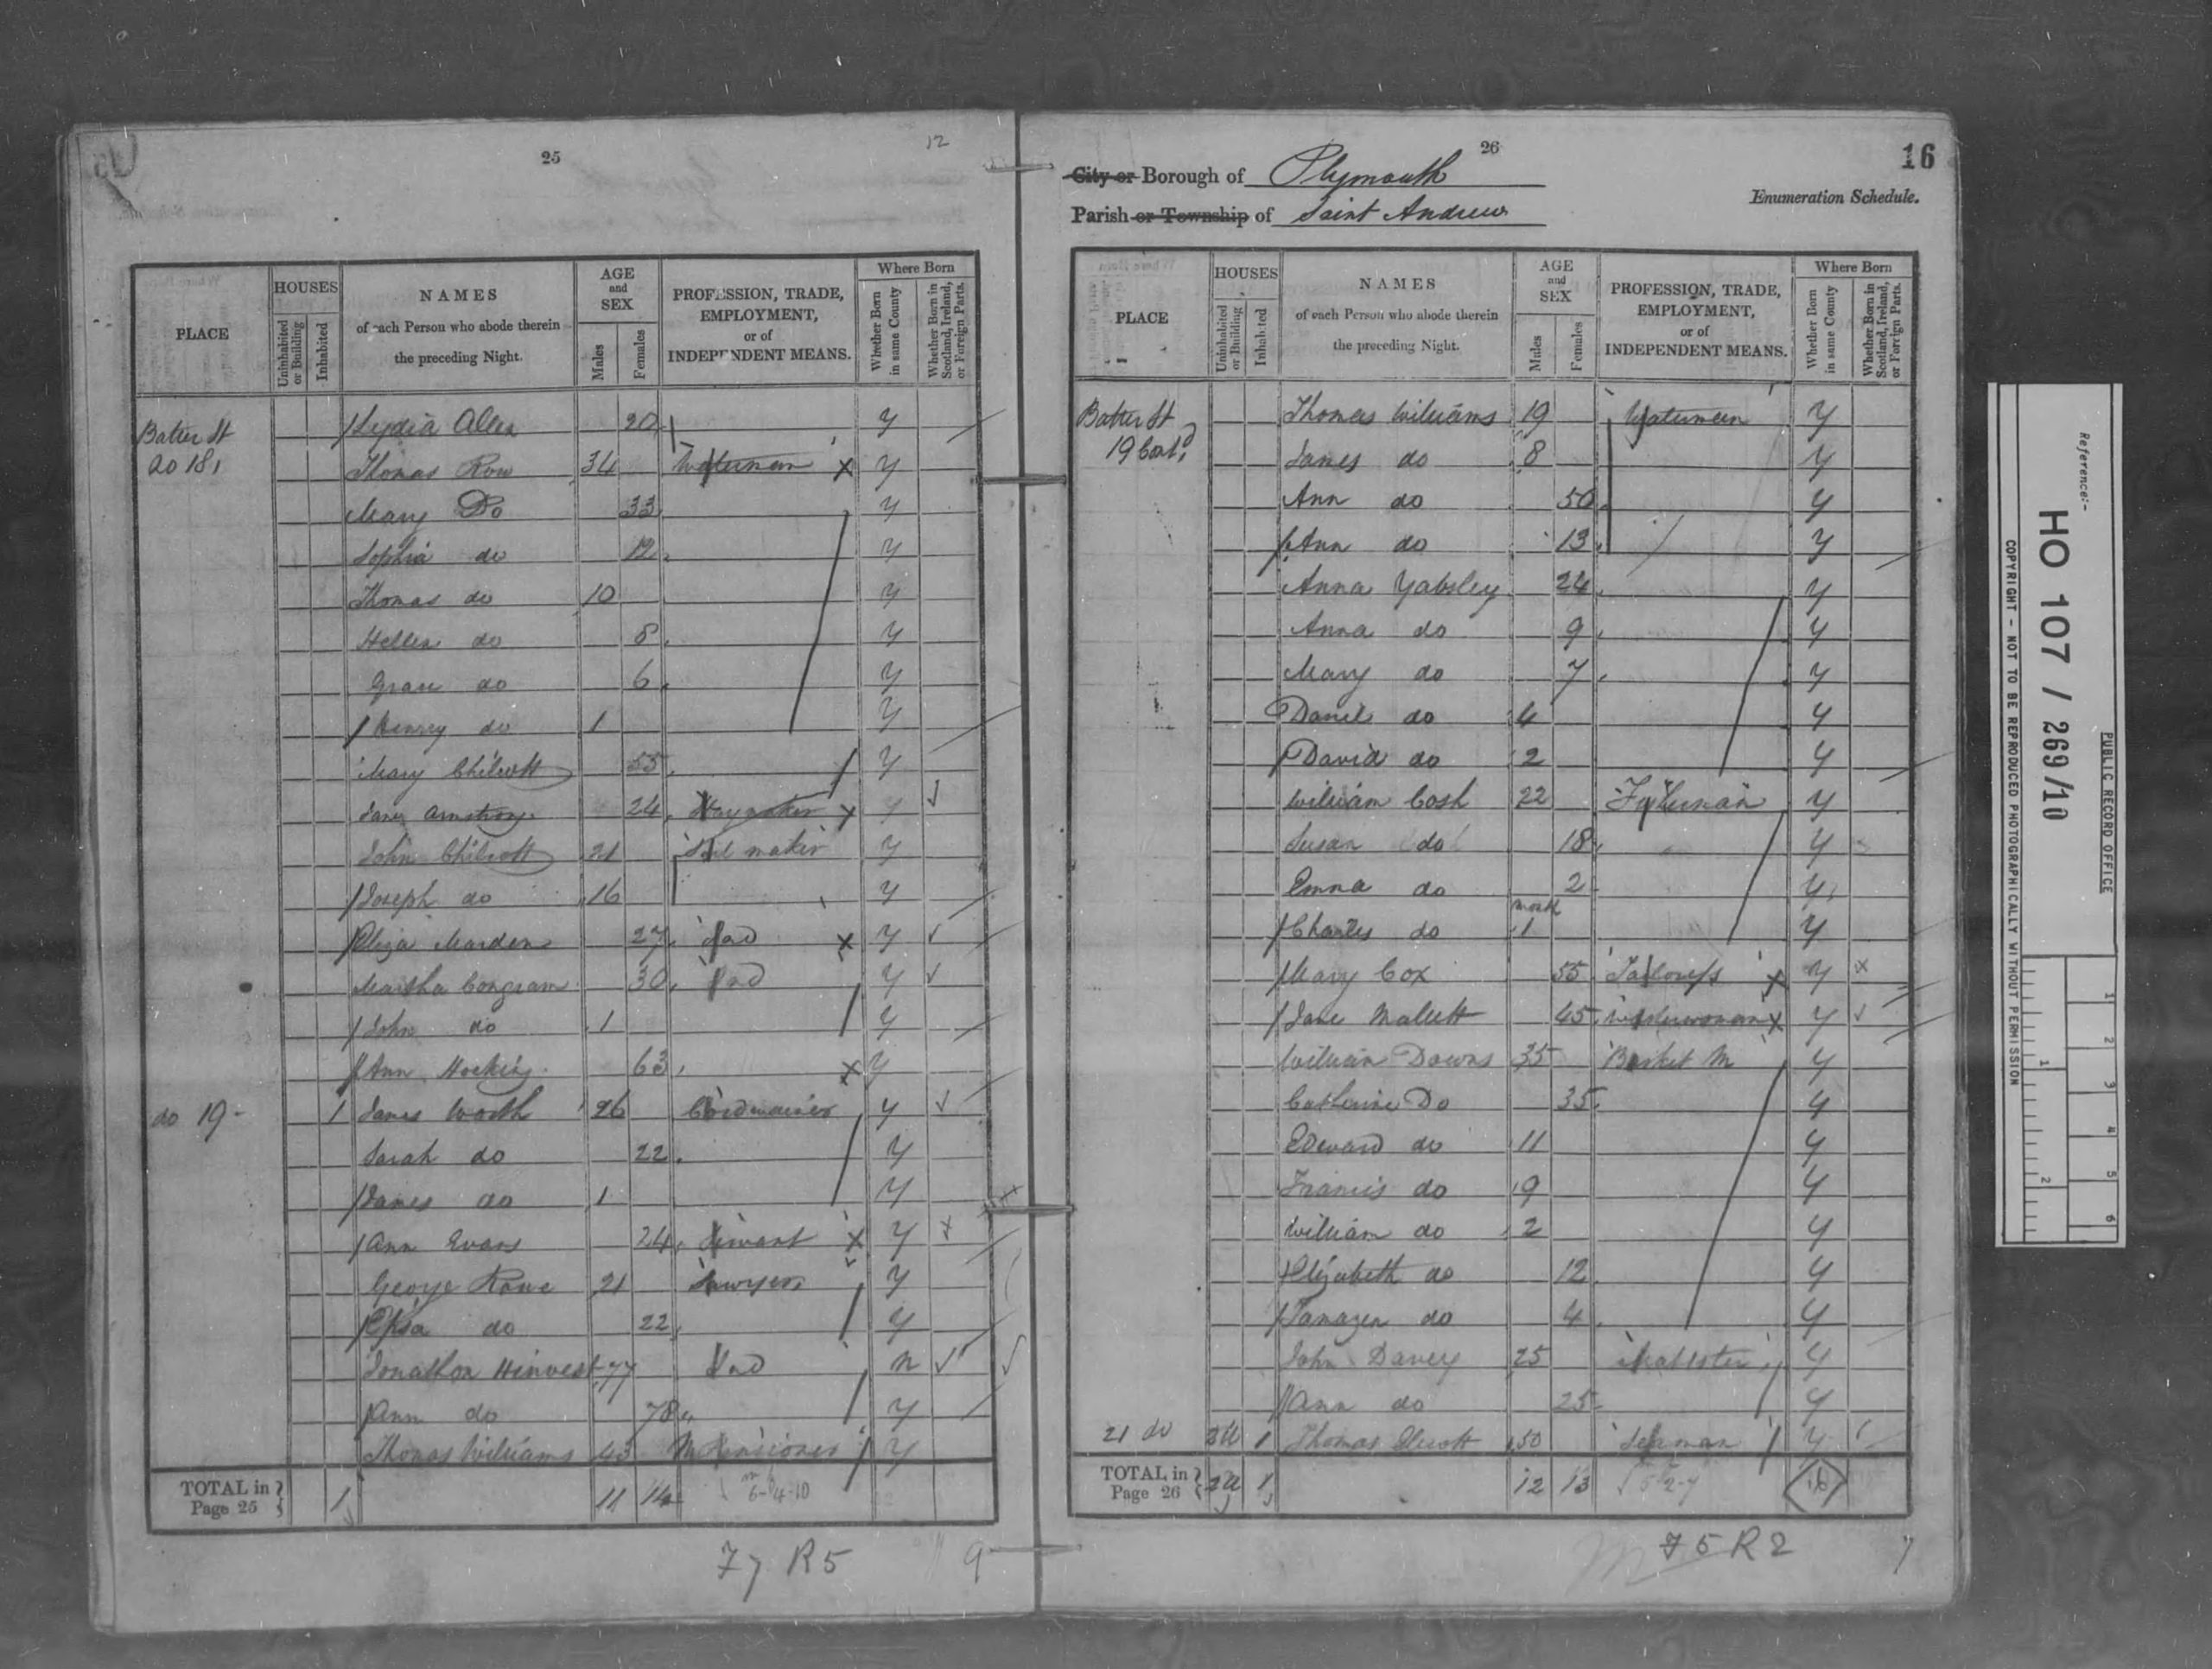 25
12
PLACE
HOUSES
Uninhabited or Building
Inhabited
NAMES
of each Person who abode therein
the preceding Night.
AGE
and
SEX
Males
Females
PROFESSION, TRADE,
EMPLOYMENT,
or of
INDEPENDENT MEANS.
Where Born
Whether Born in same County
Whether Born in Scotland, Ireland, or Foreign Parts.
Batter St Lydia Allen 20 y
do 18 Thomas Row 34 Waterman y
Mary Do 33 y
Sophia do 12 y
Thomas do 10 y
Hellen do 8 y
Grace do 6 y
Henry do 1 y
Mary Chilcott 55 y
Jane Armstrong 24 Staymaker y
John Chilcott 21 Sail maker y
Joseph do 16 y
Eliza Marden 27 Ind y
Martha Congram 30 Ind y
John do 1 y
Ann Hocking 63 y
do 19 1 James Worth 26 Cordwainer y
Sarah do 22 y
James do 1 y
Ann Evans 24 Servant y
George Rowe 21 Sawyer y
Elisa do 22 y
Jonathon Hinvest 77 Ind n
Ann do 78 y
Thomas Williams 43 Pensioner y
TOTAL in Page 25 1 11 14 6-4-10
77 R5 9
26
16
City or Borough of Plymouth
Parish or Township of Saint Andrew
Enumeration Schedule.
PLACE
HOUSES
Uninhabited or Building
Inhabited
NAMES
of each Person who abode therein
the preceding Night.
AGE
and
SEX
Males
Females
PROFESSION, TRADE,
EMPLOYMENT,
or of
INDEPENDENT MEANS.
Where Born
Whether Born in same County
Whether Born in Scotland, Ireland, or Foreign Parts.
Batter St Thomas Williams 19 Waterman y
19 Contd James do 8 y
Ann do 50 y
Ann do 13 y
Anna Yabsley 24 y
Anna do 9 y
Mary do 7 y
Daniel do 4 y
David do 2 y
William Cosh 22 Fisherman y
Susan do 18 y
Emma do 2 y
month
Charles do 1 y
Mary Cox 55 Tailoress y
Jane Mallett 45 Washerwoman y
William Downs 35 Basket M y
Catherine Do 35 y
Edward do 11 y
Francis do 9 y
William do 2 y
Elizabeth do 12 y
Tamazen do 4 y
John Davey 25 Maltster y
Ann do 25 y
21 do 2U 1 Thomas 50 Seaman y
TOTAL in Page 26 2U 1 12 13 5-2-7
75 R2 7
Reference:-
PUBLIC RECORD OFFICE
HO 107 / 269/10
COPYRIGHT - NOT TO BE REPRODUCED PHOTOGRAPHICALLY WITHOUT PERMISSION
1
2
3
4
5
6
1
2